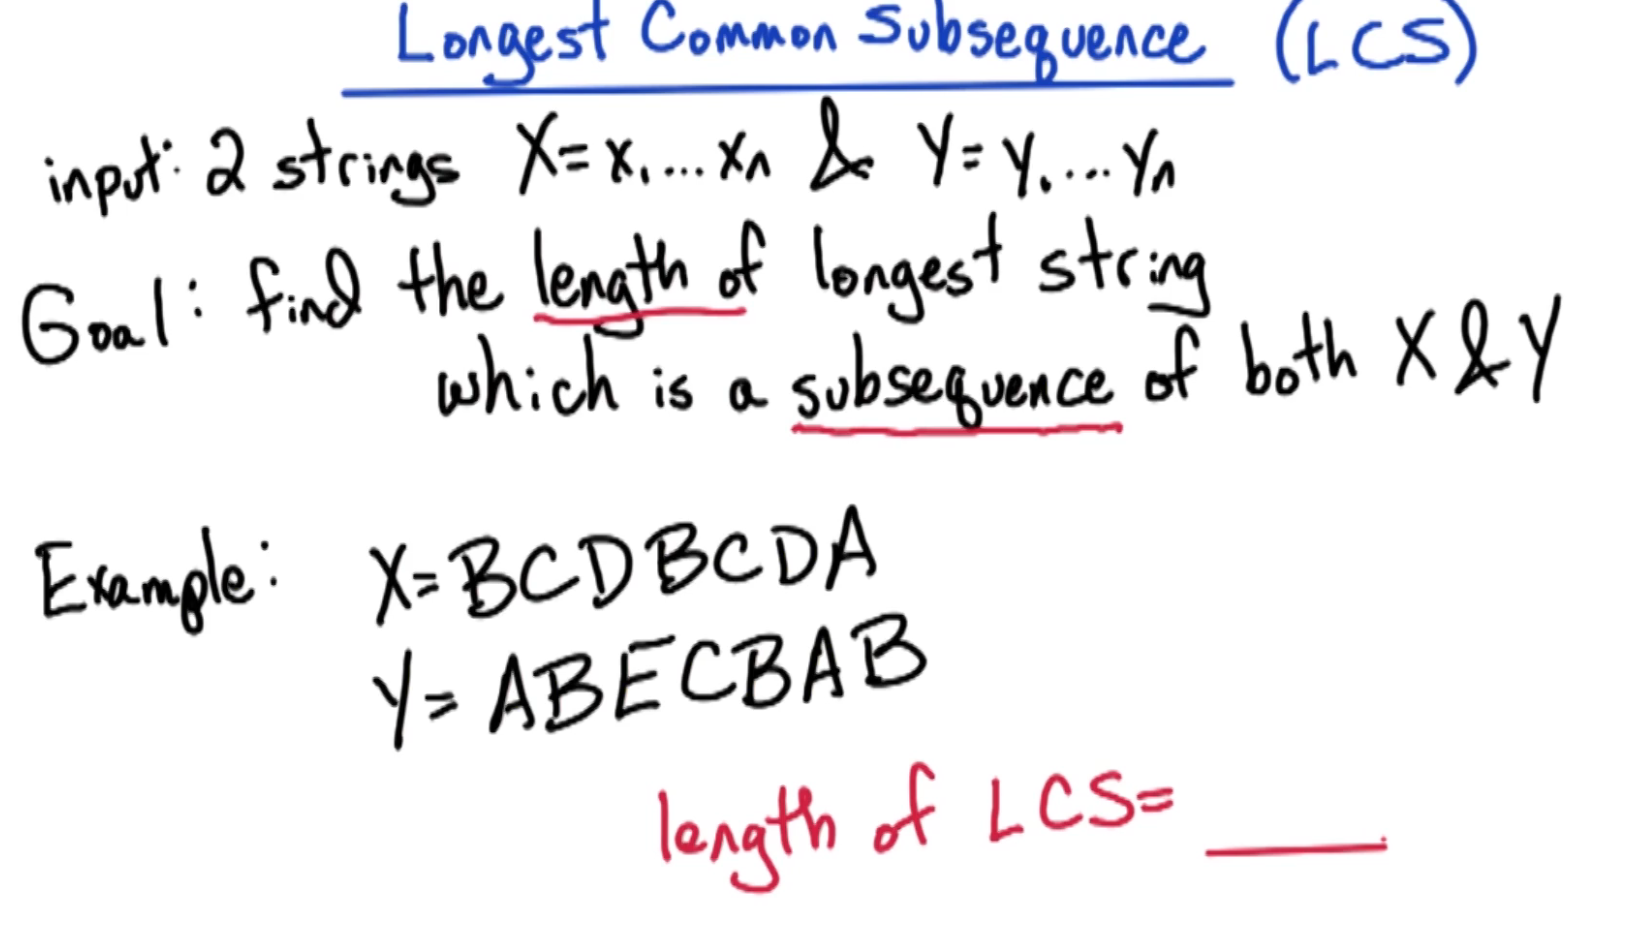 Longest Common Subsequence (LCS)
input: 2 strings X = x₁...xₙ & Y = y₁...yₙ
Goal: find the length of longest string
which is a subsequence of both X & Y
Example: X = BCDBCDA
Y = ABECBAB
length of LCS = ____